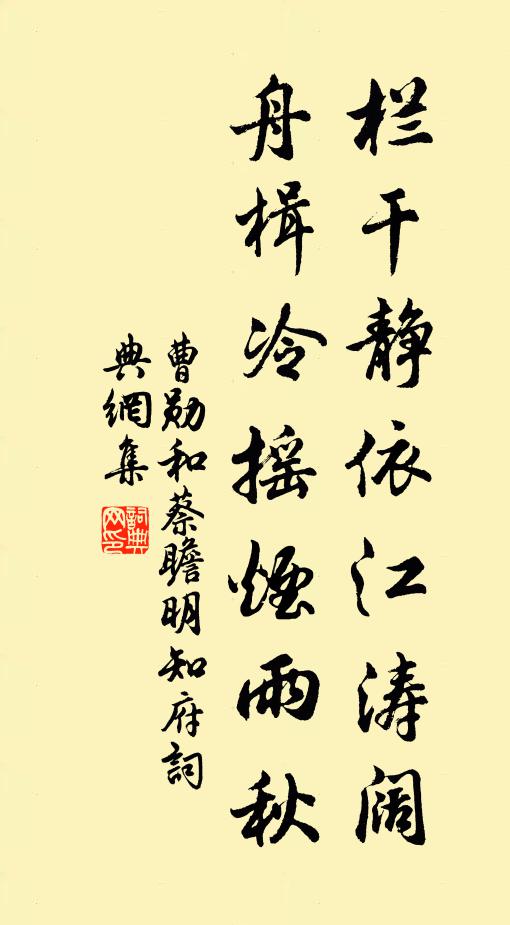 栏干静依江涛阔
舟楫冷摇煙雨秋
曹勋和蔡瞻明知府詞
典網集
詞典网印